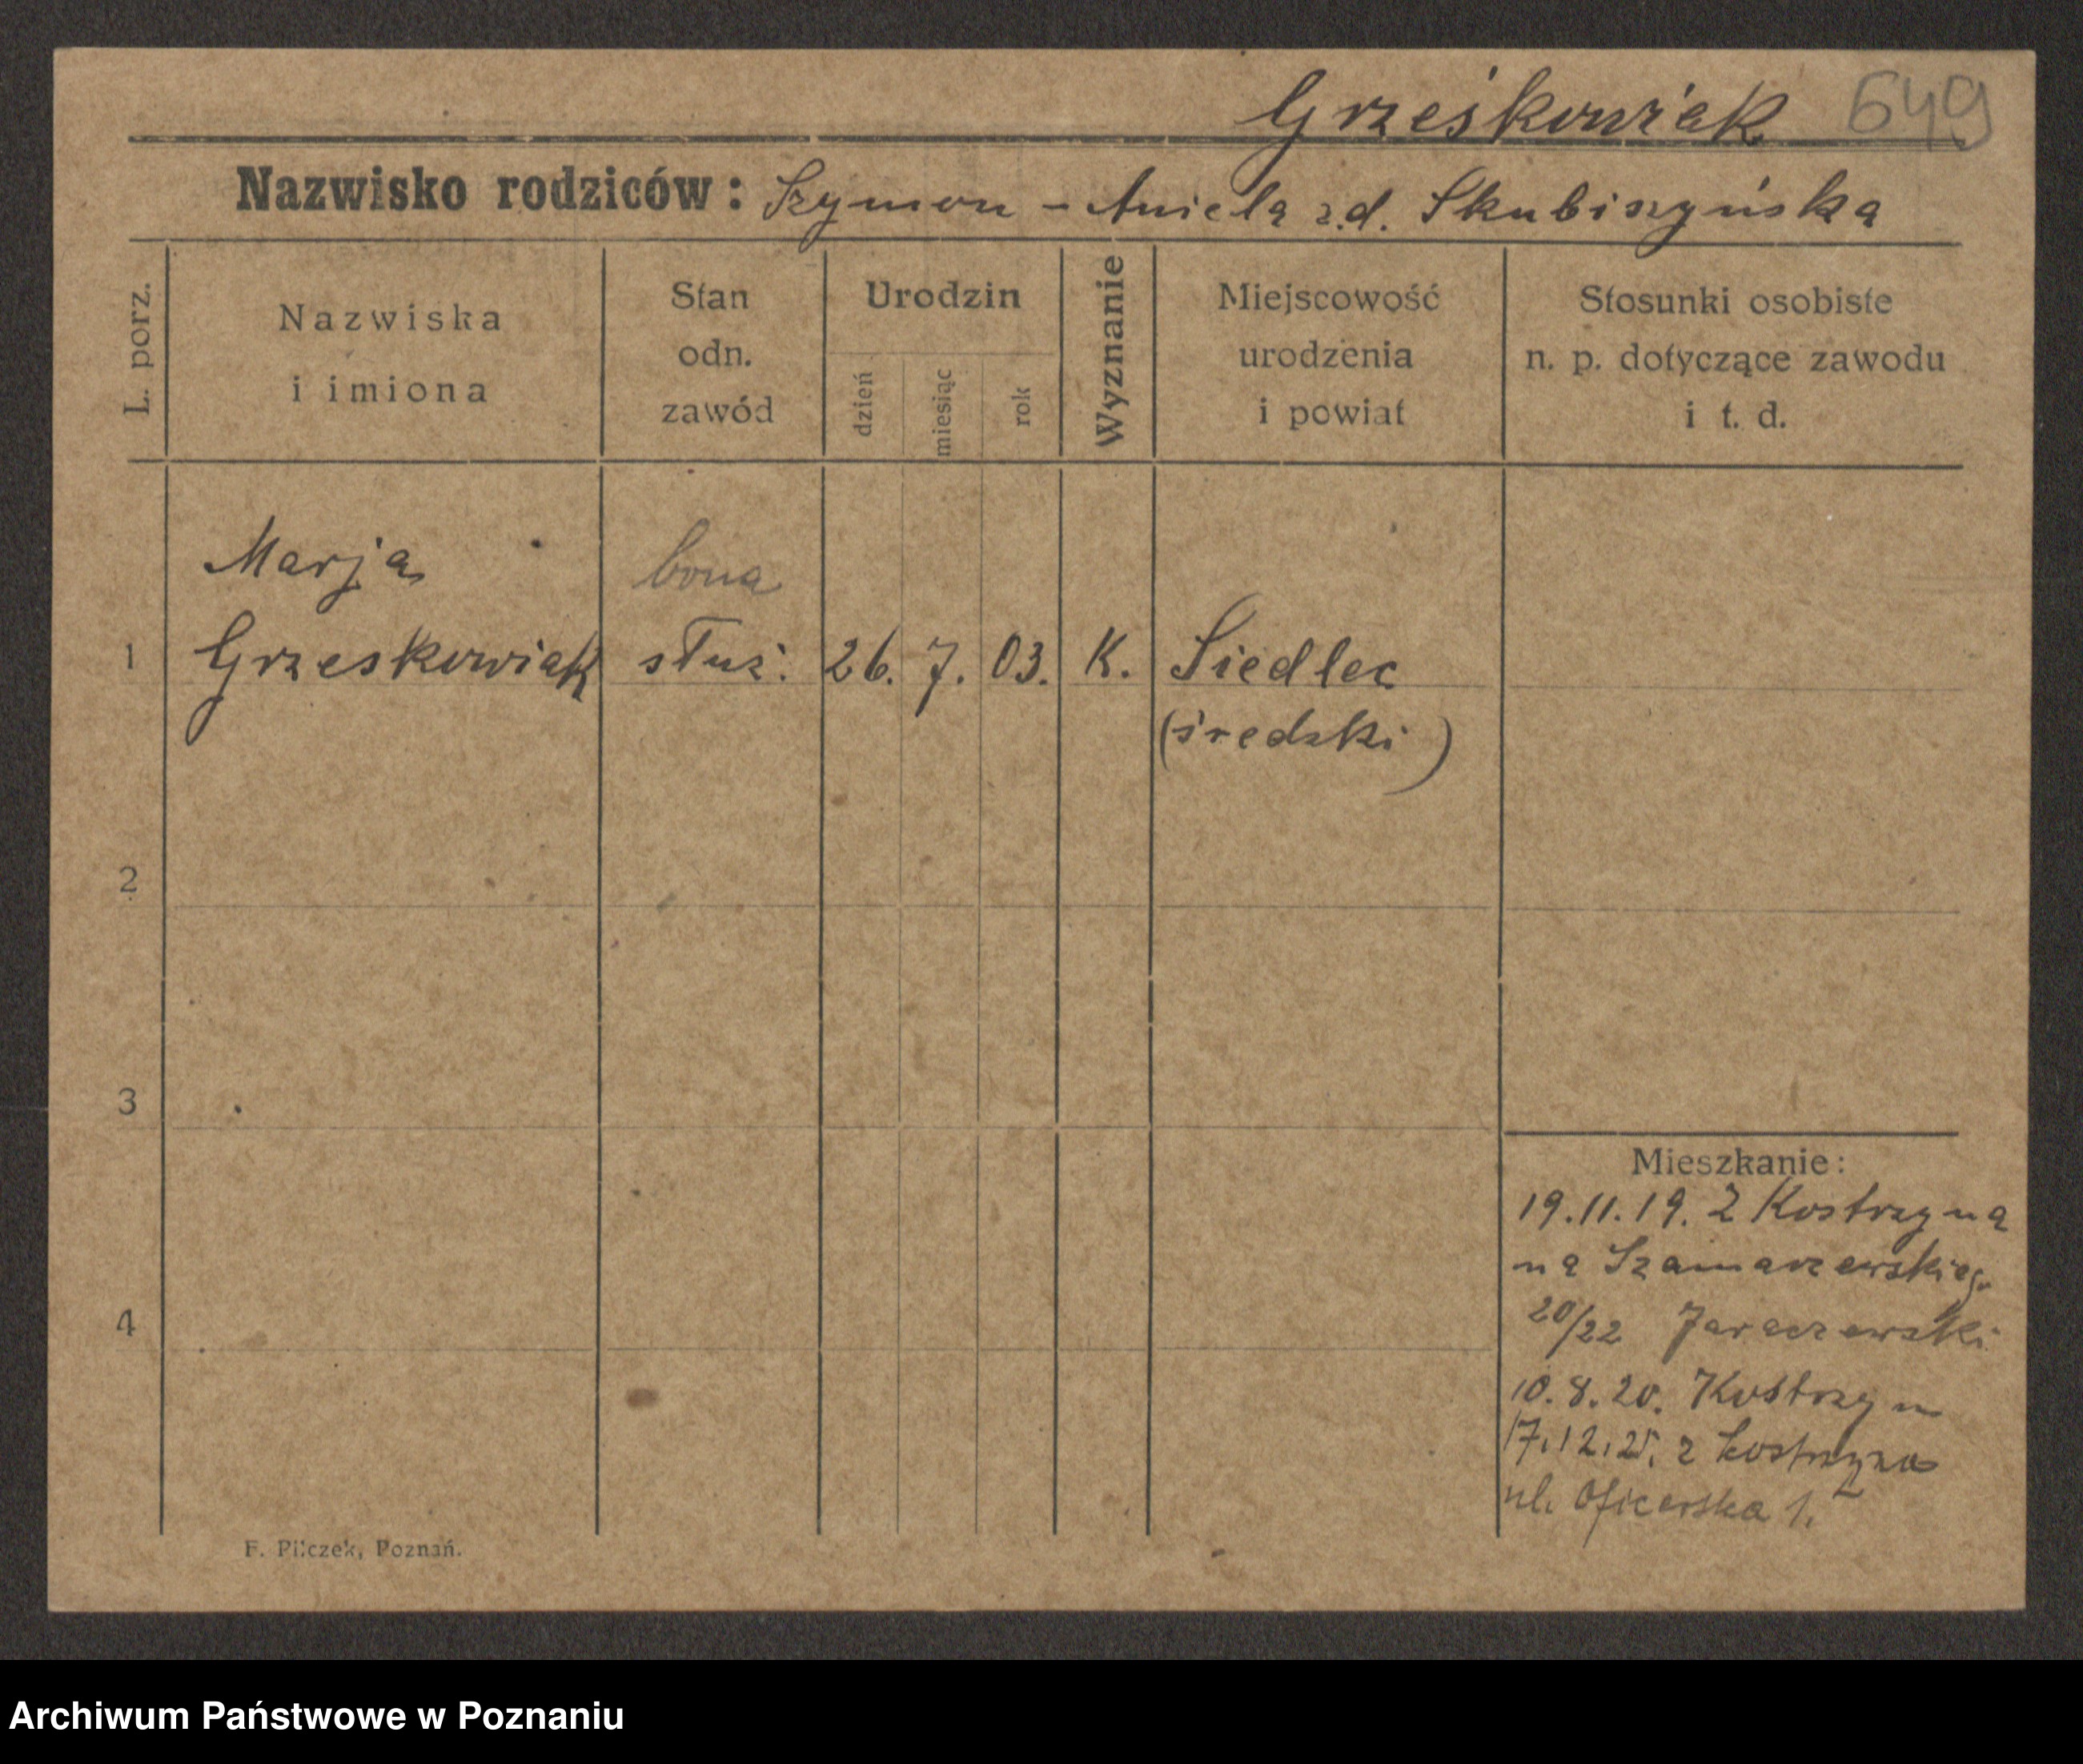 Grześkowiak 649
Nazwisko rodziców: Szymon - Aniela z.d. Skubiszyńska
L. porz.
Nazwiska
i imiona
Stan
odn.
zawód
Urodzin
dzień
miesiąc
rok
Wyznanie
Miejscowość
urodzenia
i powiat
Stosunki osobiste
n. p. dotyczące zawodu
i t. d.
Marja
bona
1 Grzeskowiak służ. 26. 7. 03. K. Siedlec
(średzki)
2
3
4
Mieszkanie:
19.11.19. Z Kostrzyna
na Szamarzewskieg.
20/22 Jaraczewski
10.8.20. Kostrzyn
17.12.25. z Kostrzyna
ul. Oficerska 1.
F. Pilczek, Poznań.
Archiwum Państwowe w Poznaniu